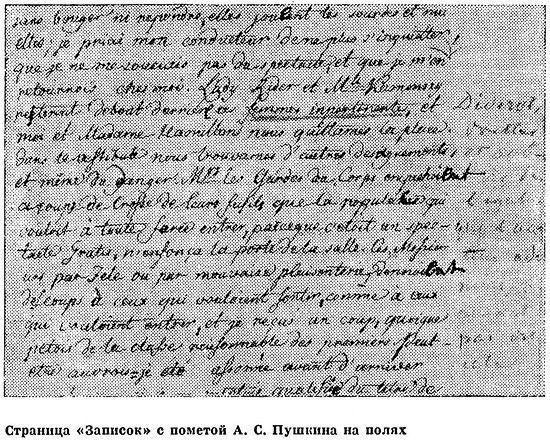 sans bouger ni repondre, elles jouoient les sourdes et mu
elles; je priai mon conducteur de ne plus s'inquieter,
que je ne me souciois pas du spectacle, et que je m'en
retournois chés moi. Lady Rider et Mlle Kamensky
resterent debout derriere la femme impertinente, et
moi et Madame Hamilton nous quittames la place.
dans le vestibule nous trouvames d'autres desagrements,
et même du danger. Mrs les Gardes du Corps empechoient
à coups de Crosse de leurs fusils que la populace qui
vouloit à toute force entrer, parceque c'etoit un spec-
tacle gratis, n'enfonça la porte de la salle. Ces Messieu
urs par zele ou par mauvaise plaisanterie, donnoient
des coups à ceux qui vouloient sortir, comme à ceux
qui vouloient entrer, et je reçus un coup, quoique
j'etois de la classe raisonnable des premiers peut-
etre aurois-je eté assommé avant d'arriver
qualité du
Страница «Записок» с пометой А. С. Пушкина на полях